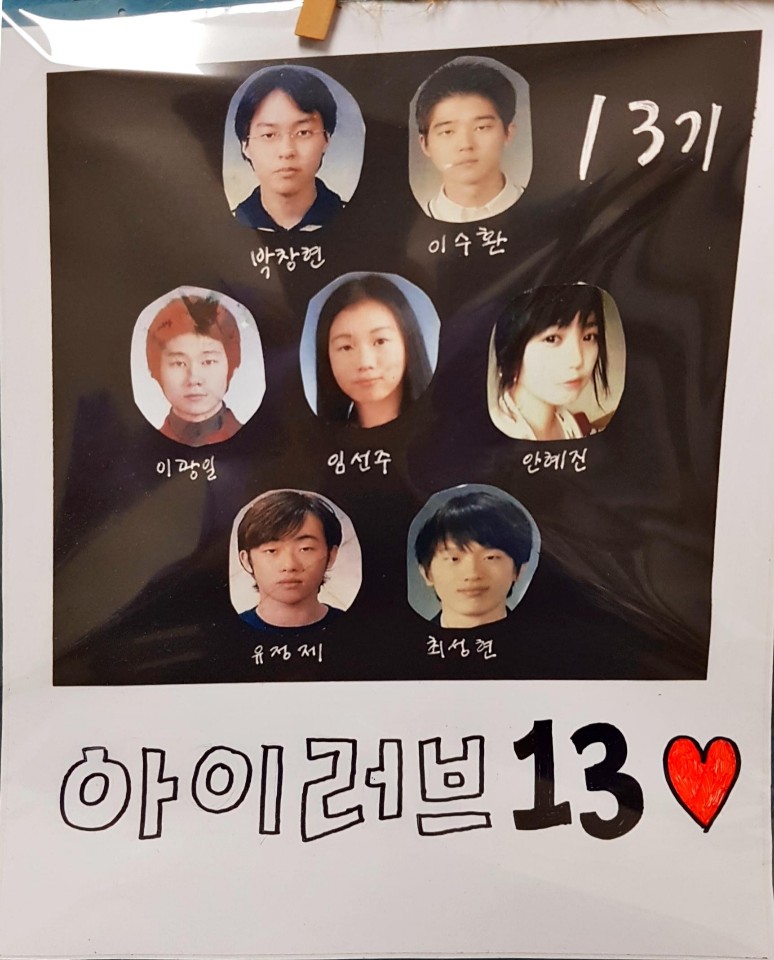 13기
박창현 이수환
이광일 임선주 안혜진
유정제 최성현
아이러브 13